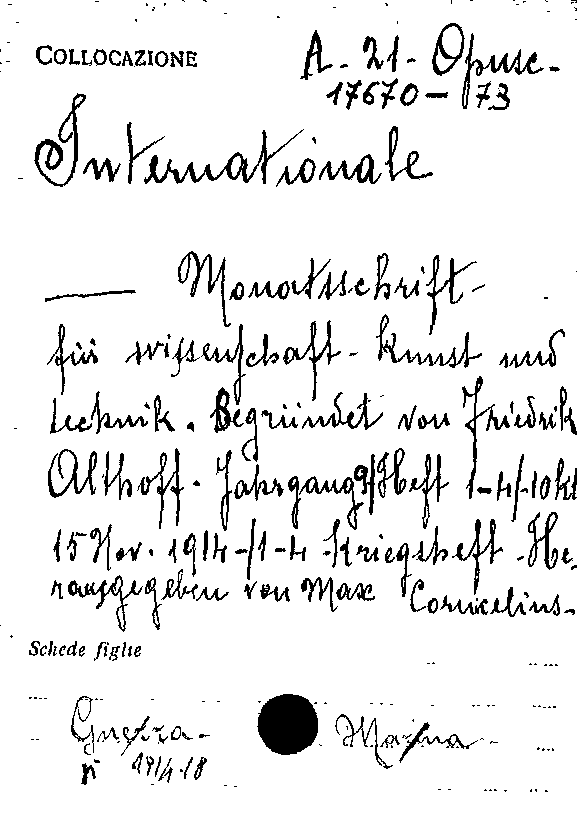 COLLOCAZIONE
A - 21 - Opusc -
17670 - 73
Internationale
— Monatsschrift -
für wissenschaft - kunst und
technik. Begründet von Friedrik
Althoff - Jahrgang 9/Heft 1-4/-10kt
15 Nov. 1914 -/1-4 - Kriegsheft - He-
rausgegeben von Max Cornicelius -
Schede figlie
Guerra -
Marina -
n 1914-18